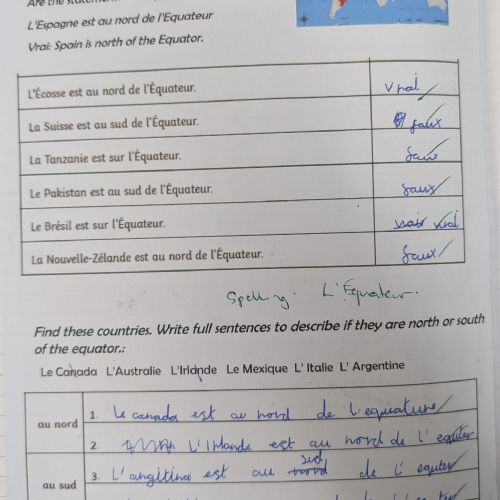 Are the
L'Espagne est au nord de l'Equateur
Vrai: Spain is north of the Equator.
L'Écosse est au nord de l'Équateur. vrai
La Suisse est au sud de l'Équateur. faux
La Tanzanie est sur l'Équateur. faux
Le Pakistan est au sud de l'Équateur. faux
Le Brésil est sur l'Équateur. vrai
La Nouvelle-Zélande est au nord de l'Équateur. faux
Spelling: L'Équateur.
Find these countries. Write full sentences to describe if they are north or south
of the equator.:
Le Canada L'Australie L'Irlande Le Mexique L' Italie L' Argentine
au nord
1. Le canada est au nord de l'equature
2. L'Irlande est au nord de l'equter
au sud
3. L'angitina est au sud de l'equter